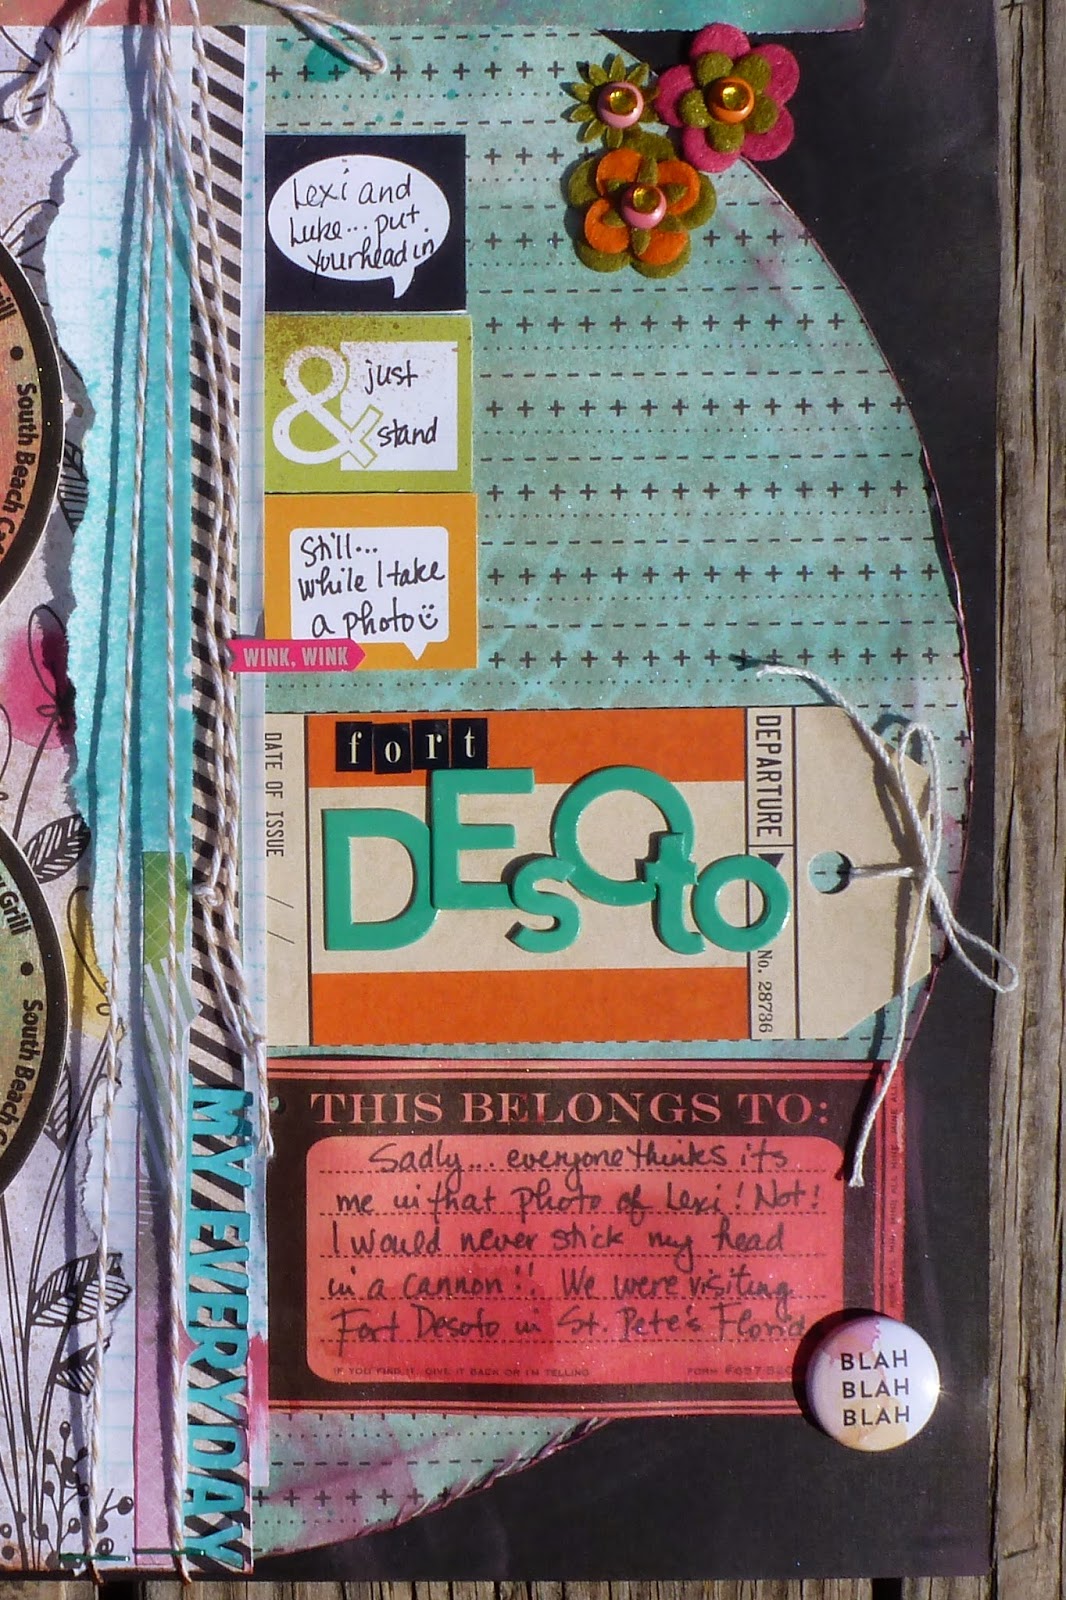 Lexi and
Luke... put
your head in
&
just
stand
Still...
while I take
a photo
WINK, WINK
fort
DESOto
DATE OF ISSUE
/ /
DEPARTURE
No. 28736
THIS BELONGS TO:
Sadly... everyone thinks its
me in that photo of Lexi! Not!
I would never stick my head
in a cannon!! We were visiting
Fort Desoto in St. Pete's Florid
IF YOU FIND IT, GIVE IT BACK OR I'M TELLING
FORM
BLAH
BLAH
BLAH
MY EVERYDAY
South Beach
Grill
South Beach
Grill